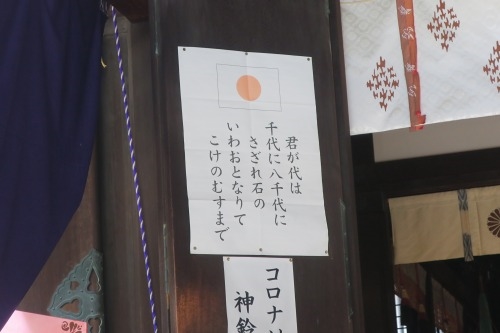 君が代は
千代に八千代に
さざれ石の
いわおとなりて
こけのむすまで
コロナ
神鈴